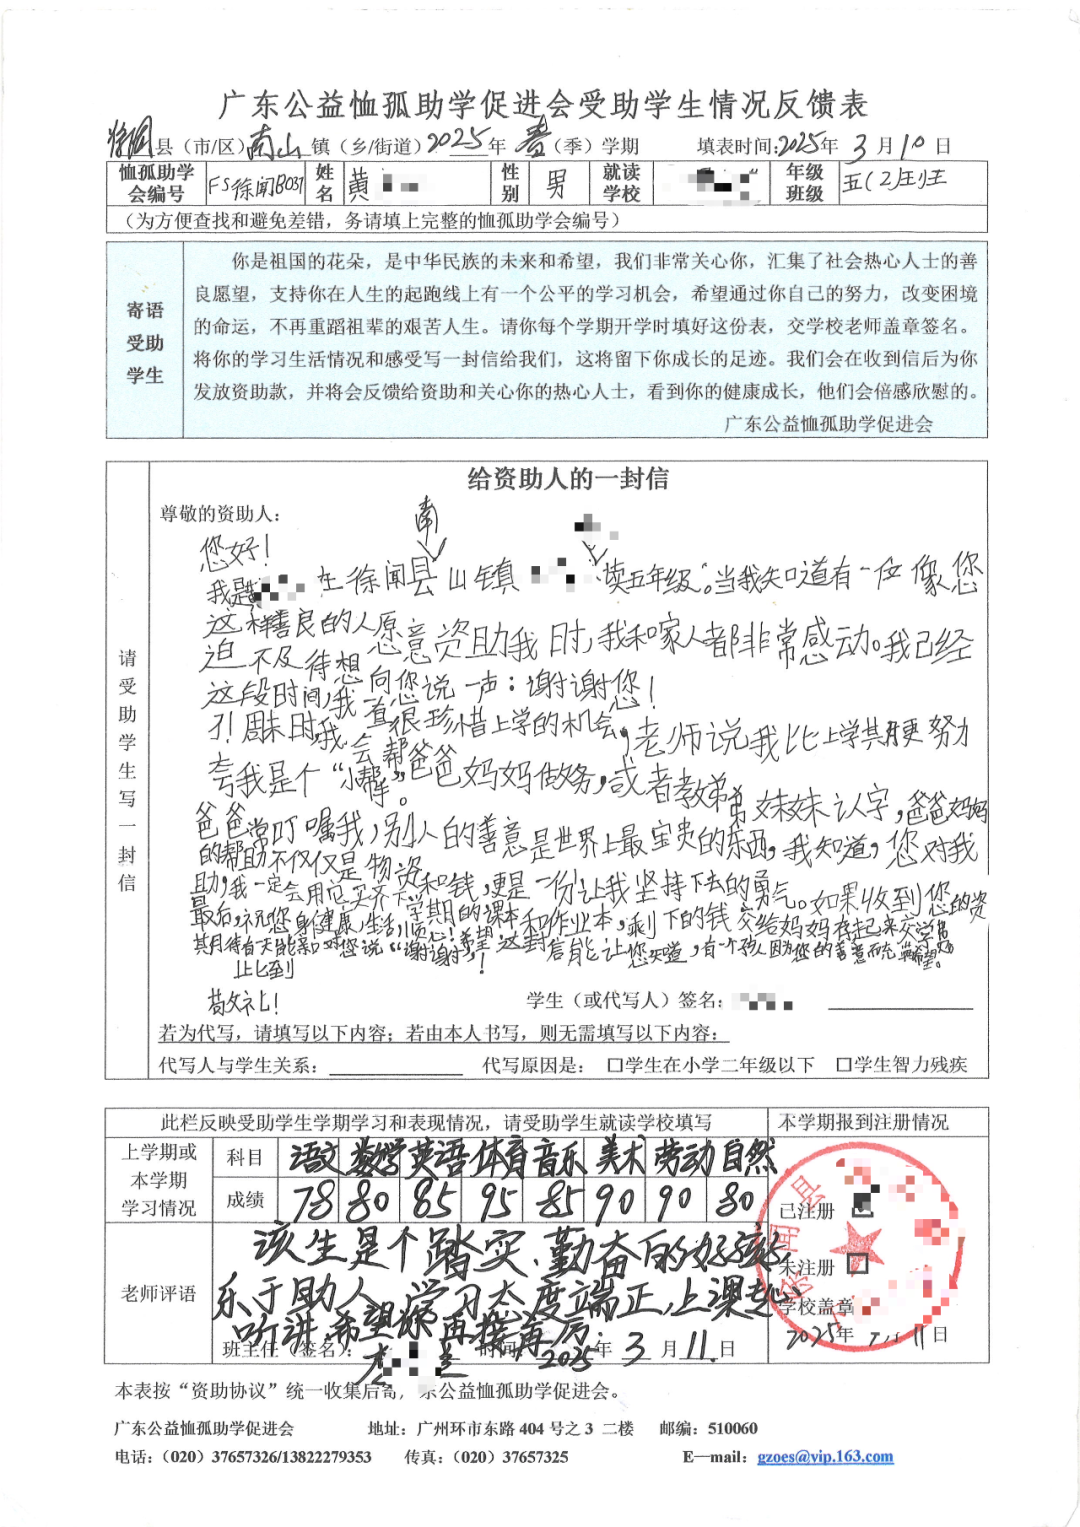 广东公益恤孤助学促进会受助学生情况反馈表
徐闻县（市/区）南山镇（乡/街道）2025年春（季）学期 填表时间:2025年3月10日
恤孤助学会编号 FS徐闻B037 姓名 黄 性别 男 就读学校 年级班级 五(2)班
（为方便查找和避免差错，务请填上完整的恤孤助学会编号）
寄语受助学生
你是祖国的花朵，是中华民族的未来和希望，我们非常关心你，汇集了社会热心人士的善
良愿望，支持你在人生的起跑线上有一个公平的学习机会，希望通过你自己的努力，改变困境
的命运，不再重蹈祖辈的艰苦人生。请你每个学期开学时填好这份表，交学校老师盖章签名。
将你的学习生活情况和感受写一封信给我们，这将留下你成长的足迹。我们会在收到信后为你
发放资助款，并将会反馈给资助和关心你的热心人士，看到你的健康成长，他们会倍感欣慰的。
广东公益恤孤助学促进会
请受助学生写一封信
给资助人的一封信
尊敬的资助人：
您好！
我是 在徐闻县南山镇 上读五年级。当我知道有一位像您
这样善良的人愿意资助我时，我和家人都非常感动。我已经
迫不及待想向您说一声：谢谢您！
这段时间，我一直很珍惜上学的机会，老师说我比上学期更努力
了！周末时，我会帮爸爸妈妈做务，或者教弟弟妹妹认字，爸爸妈妈
夸我是个“小帮手”。
爸爸常叮嘱我，别人的善意是世界上最宝贵的东西，我知道，您对我
的帮助不仅仅是物资和钱，更是一份让我坚持下去的勇气。如果收到您的资
助，我一定会用它买齐下学期的课本和作业本，剩下的钱交给妈妈存起来交学费
最后，祝您身体健康，生活顺心！希望这封信能让您知道，有一个孩子因为您的善意而充满希望。
其月待有天能亲口对您说“谢谢”！
此致
敬礼！
学生（或代写人）签名：
若为代写，请填写以下内容；若由本人书写，则无需填写以下内容：
代写人与学生关系： 代写原因是： □学生在小学二年级以下 □学生智力残疾
此栏反映受助学生学期学习和表现情况，请受助学生就读学校填写 本学期报到注册情况
上学期或本学期学习情况
科目 语文 数学 英语 体育 音乐 美术 劳动 自然
成绩 78 80 85 95 85 90 90 80
已注册
未注册
学校盖章
2025年 11日
老师评语
该生是个踏实、勤奋的好孩子，
乐于助人，学习态度端正，上课专心
听讲，希望你再接再厉。
班主任（签名）： 时间：2025年3月11日
本表按“资助协议”统一收集后寄，东公益恤孤助学促进会。
广东公益恤孤助学促进会 地址：广州环市东路 404 号之 3 二楼 邮编：510060
电话：（020）37657326/13822279353 传真：（020）37657325 E—mail：gzoes@vip.163.com